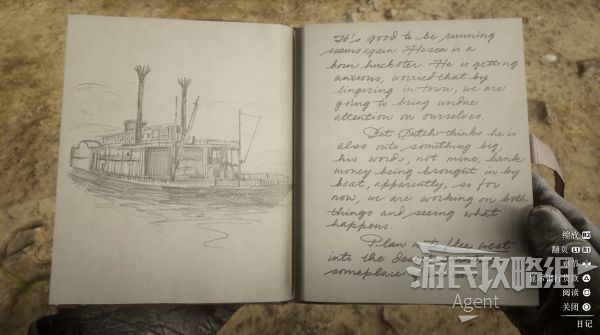 It's good to be running
scams again. Hosea is a
born huckster. He is getting
anxious, worried that by
lingering in town, we are
going to bring undue
attention on ourselves.
But Dutch thinks he is
also onto something big,
his word, not mine, bank
money being brought in by
boat, apparently, so for
now, we are working on both
things and seeing what
happens.
Plan west
into the
someplace
游民攻略组
Agent
缩放 R2
翻页 L1 R1
阅读
关闭
日记